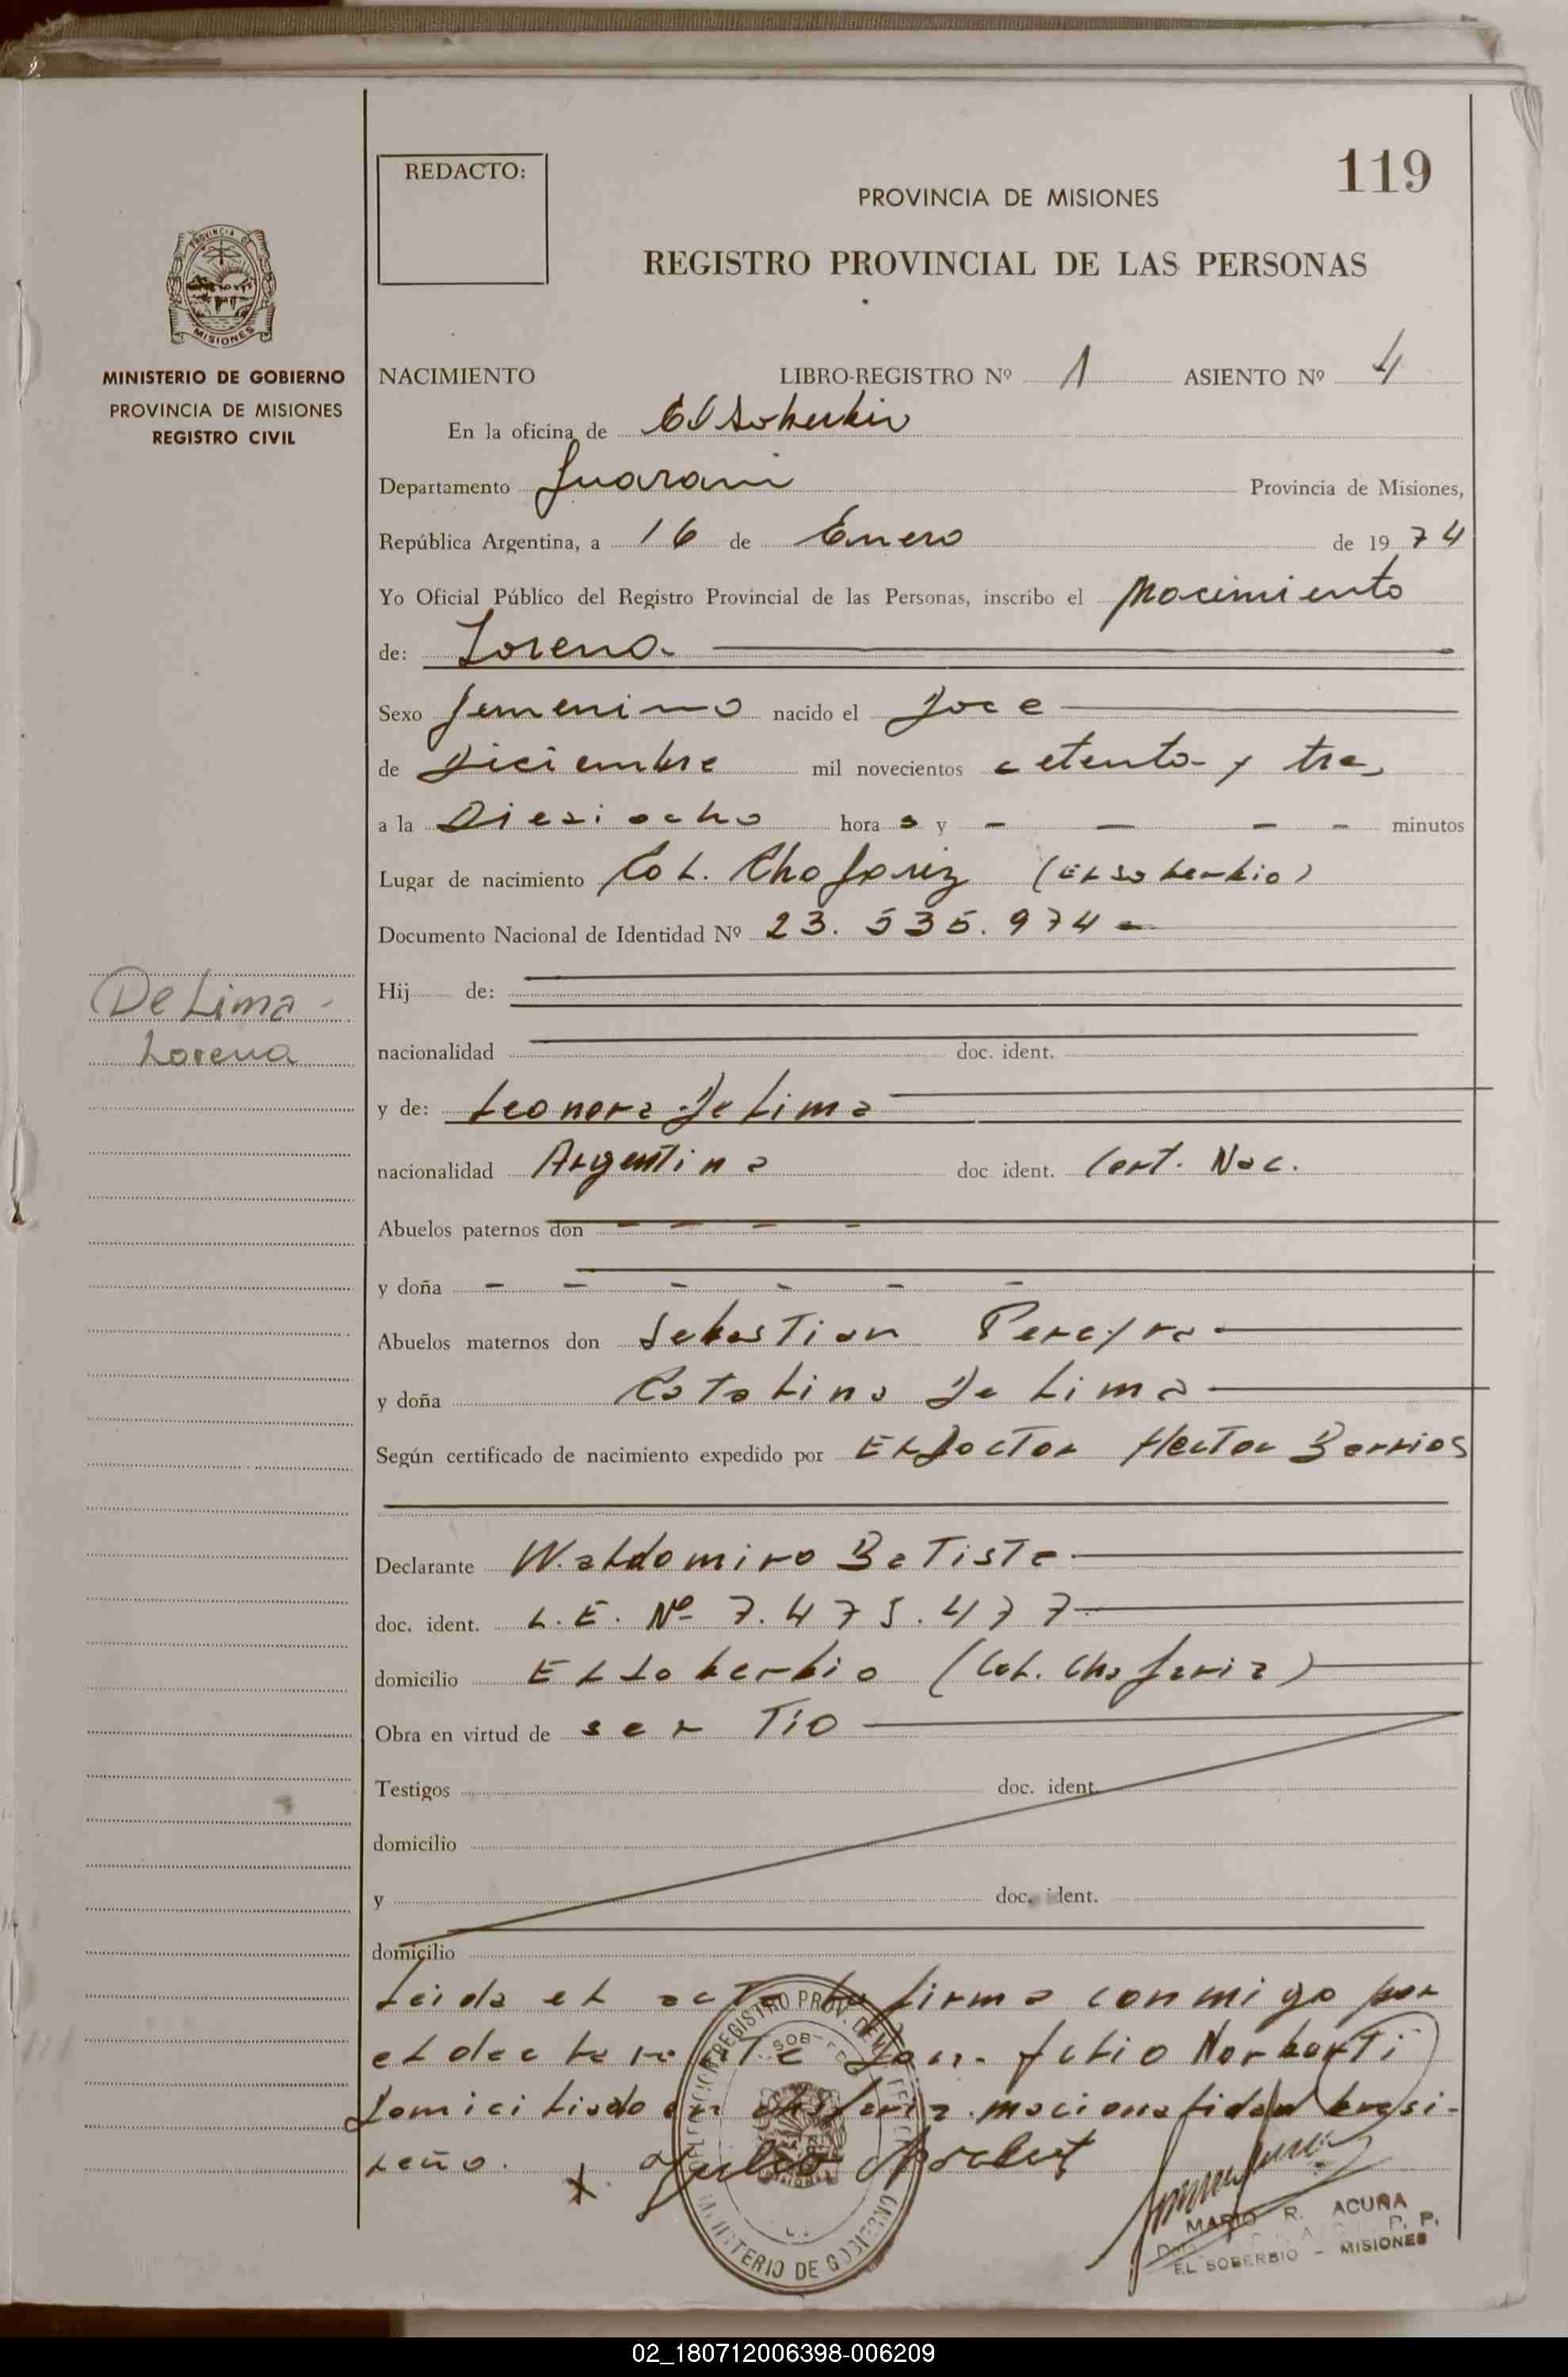 119
REDACTO:
PROVINCIA DE MISIONES
REGISTRO PROVINCIAL DE LAS PERSONAS
PROVINCIA DE
MISIONES
MINISTERIO DE GOBIERNO
PROVINCIA DE MISIONES
REGISTRO CIVIL
NACIMIENTO LIBRO-REGISTRO Nº 1 ASIENTO Nº 4
En la oficina de El Soberbio
Departamento Guarani Provincia de Misiones,
República Argentina, a 16 de Enero de 1974
Yo Oficial Público del Registro Provincial de las Personas, inscribo el Nacimiento
de: Lorena.
Sexo femenino nacido el Doce
de Diciembre mil novecientos setenta y tres
a la Dieziocho hora s y - - - - minutos
Lugar de nacimiento Col. Chafariz (El Soberbio)
Documento Nacional de Identidad Nº 23.535.974
De Lima -
Lorena
Hij de:
nacionalidad doc. ident.
y de: Leonora De Lima
nacionalidad Argentina doc ident. Cert. Nac.
Abuelos paternos don - - - -
y doña - - - - - -
Abuelos maternos don Sebastian Pereyra
y doña Catalina De Lima
Según certificado de nacimiento expedido por El Doctor Hector Barrios
Declarante Waldomiro Batista
doc. ident. L.E. Nº 7.475.477
domicilio El Soberbio (Col. Chafariz)
Obra en virtud de ser Tio
Testigos doc. ident.
domicilio
y doc. ident.
domicilio
Leida el acta la firma conmigo por
el declarante Julio Norberti
Domiciliado en Chafariz nacionalidad brasi-
leño. x Julio
MINISTERIO DE GOBIERNO
MARIO R. ACUÑA
EL SOBERBIO - MISIONES
02_180712006398-006209